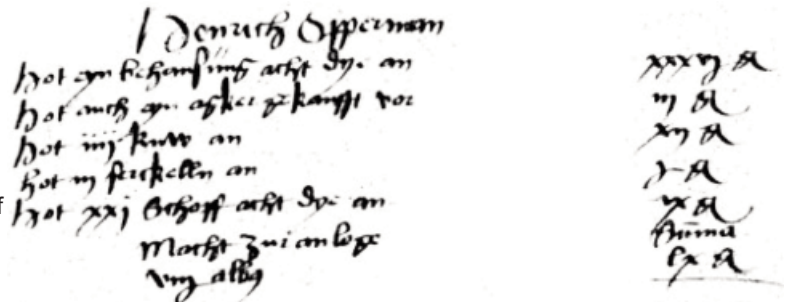 Henrich Opperman
Hot eyn behausung acht dye an xxxvj fl
Hot auch eyn acker gekaufft vor iij fl
Hot iiij kuw an xij fl
hot iij ferckelln an j fl
Hot xxj Schoff acht dye an ix fl
Macht zur anloge Summa
viij albus lx fl